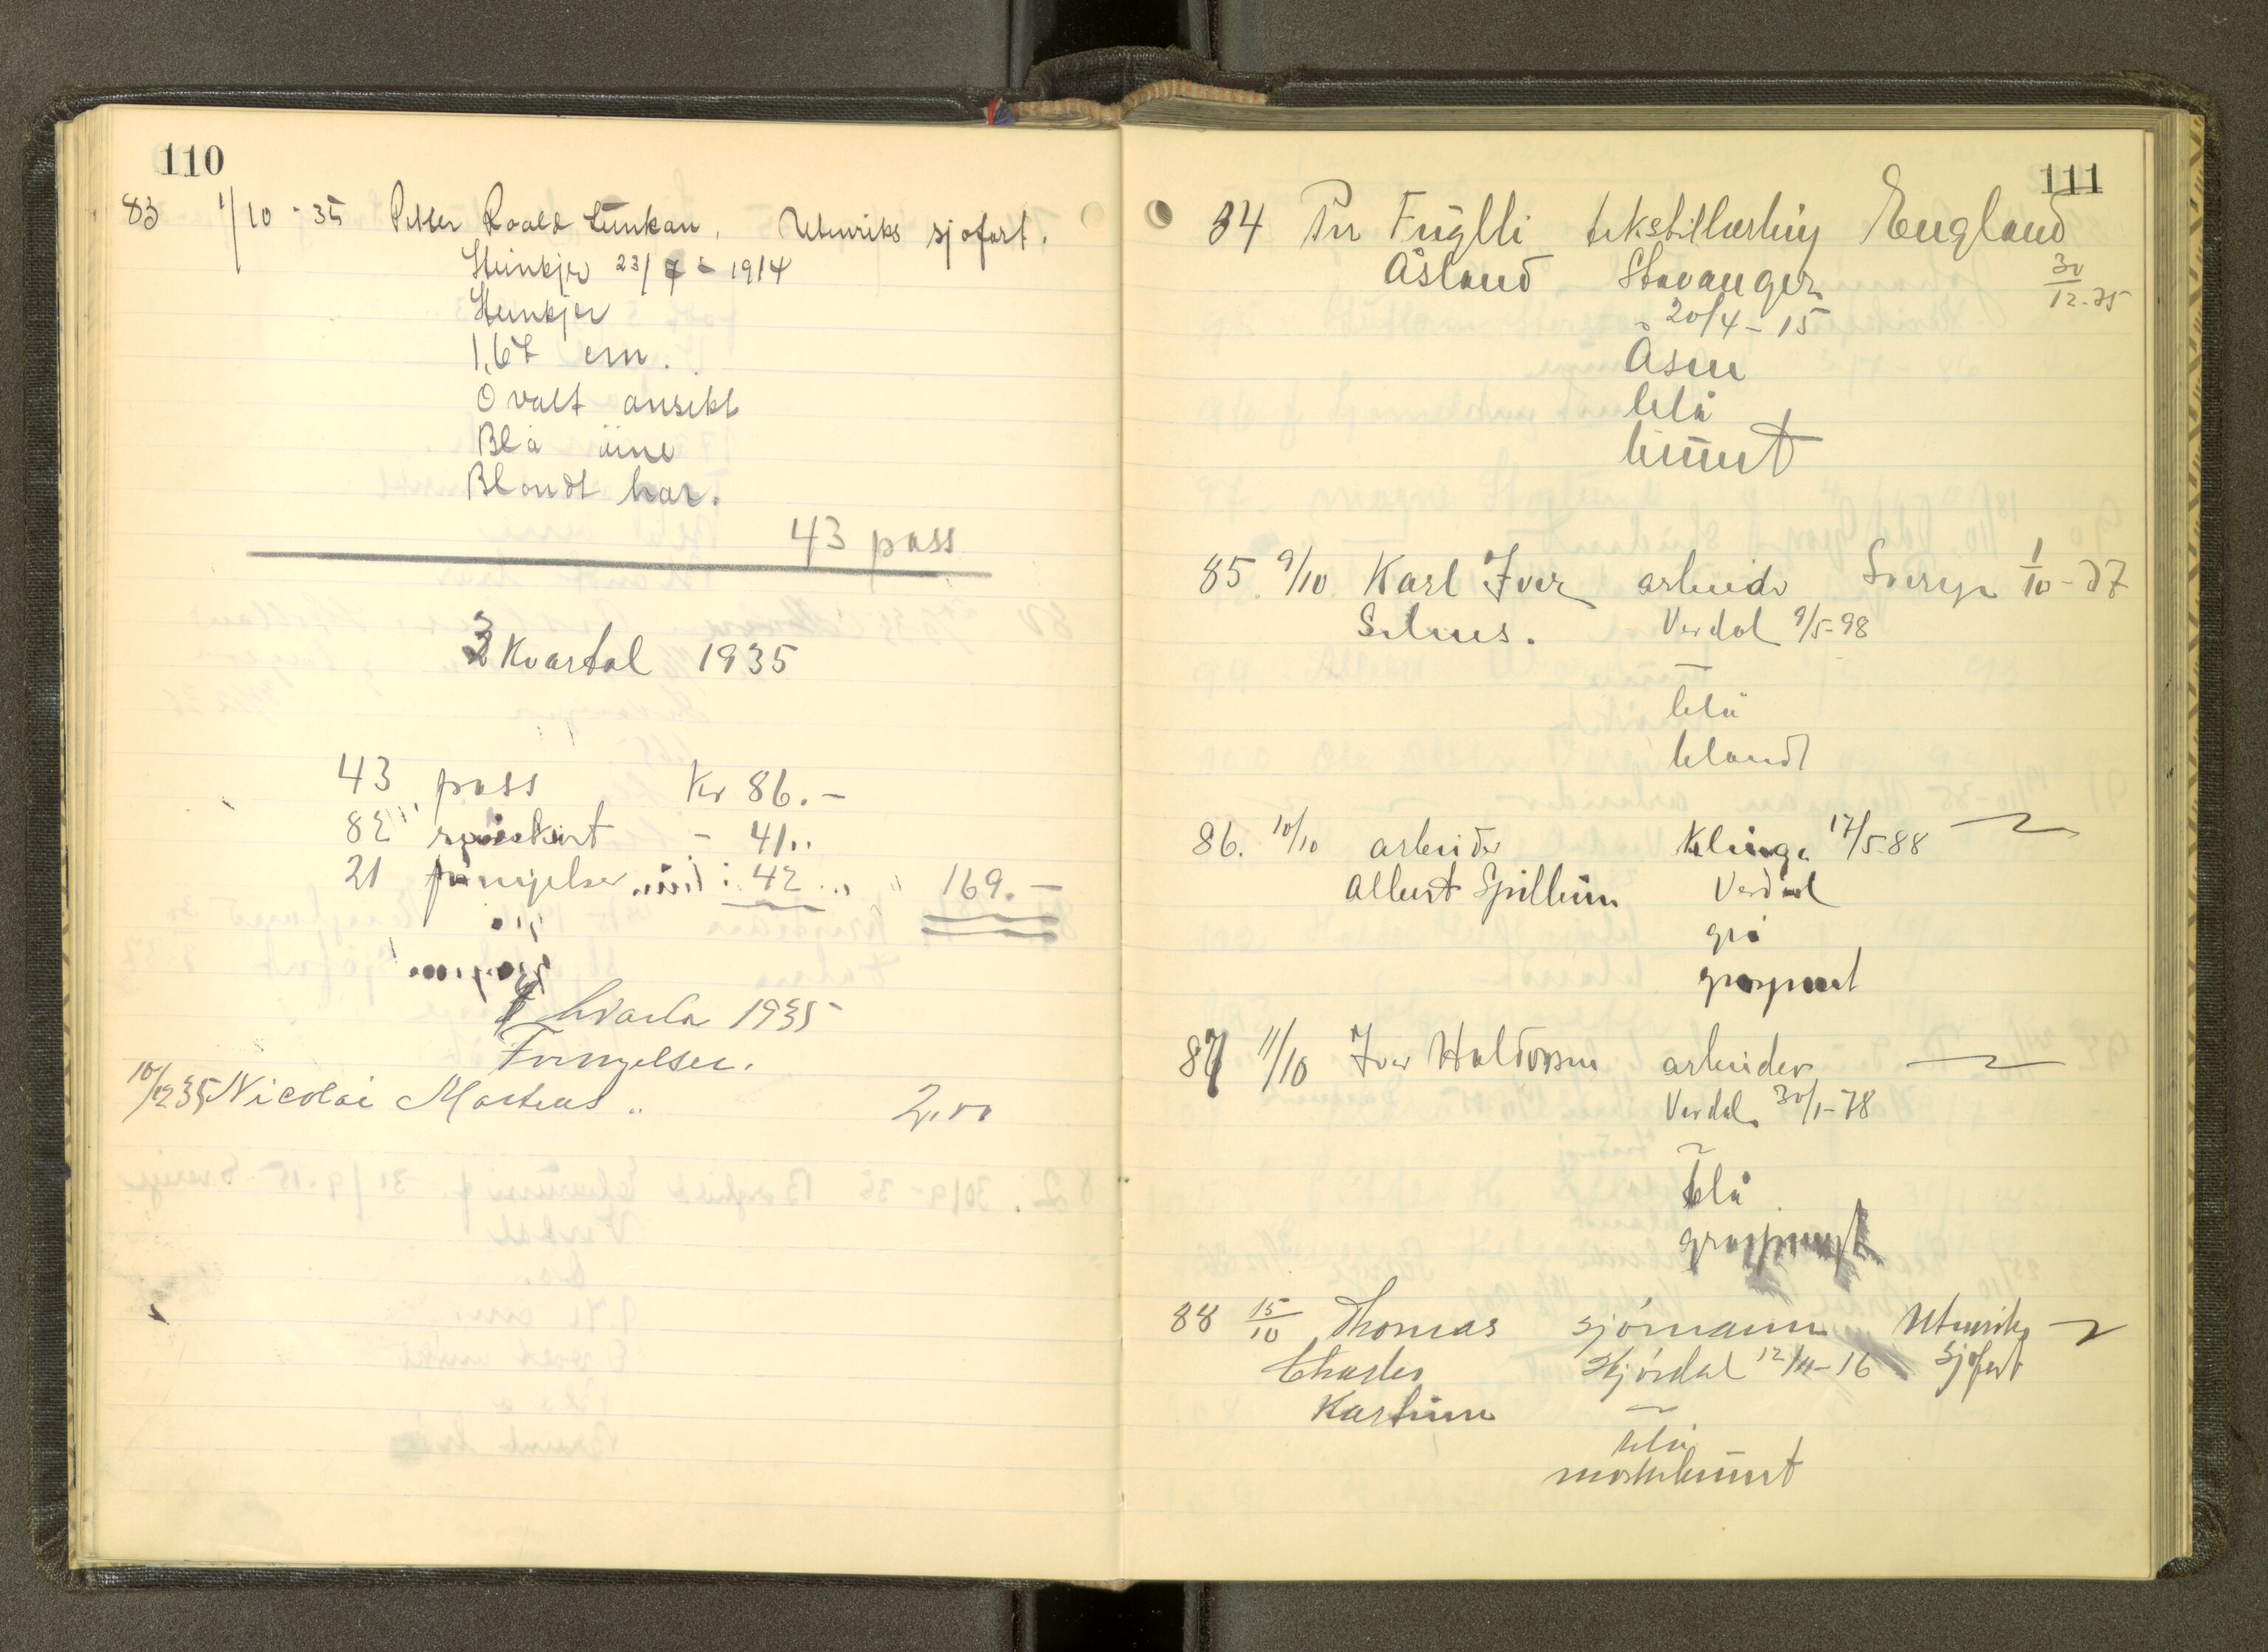 110
83 1/10-35 Petter Roald Lunkan, Utenriks sjøfart.
Steinkjer 23/7-1914
Steinkjer
1,67 cm.
Ovalt ansikt
Blå øine
Blondt hår.
43 pass
3 Kvartal 1935
43 pass Kr 86.-
82 - 41..
21 fornyelser 42 169.-
Kvartal 1935
Fornyelser.
10/12 35 Nicolai Marteus 2,00
111
84 Per Fuglli England
Åsland Stavanger 30/12-35
20/4-15
Åsen
blå
brunt
85. 9/10 Karl Iver arbeider Sverige 1/10-37
Selnes. Verdal 9/5-98
blå
blondt
86. 10/10 arbeider Klinga 17/5-88
Albert Spillum Verdal
grå
gråsprengt
87 11/10 Iver Haldorsen arbeider
Verdal 30/1-78
blå
gråsprengt
88 15/10 Thomas sjømann Utenriks
Charles Stjørdal 12/4-16 sjøfart
blå
mørkebrunt